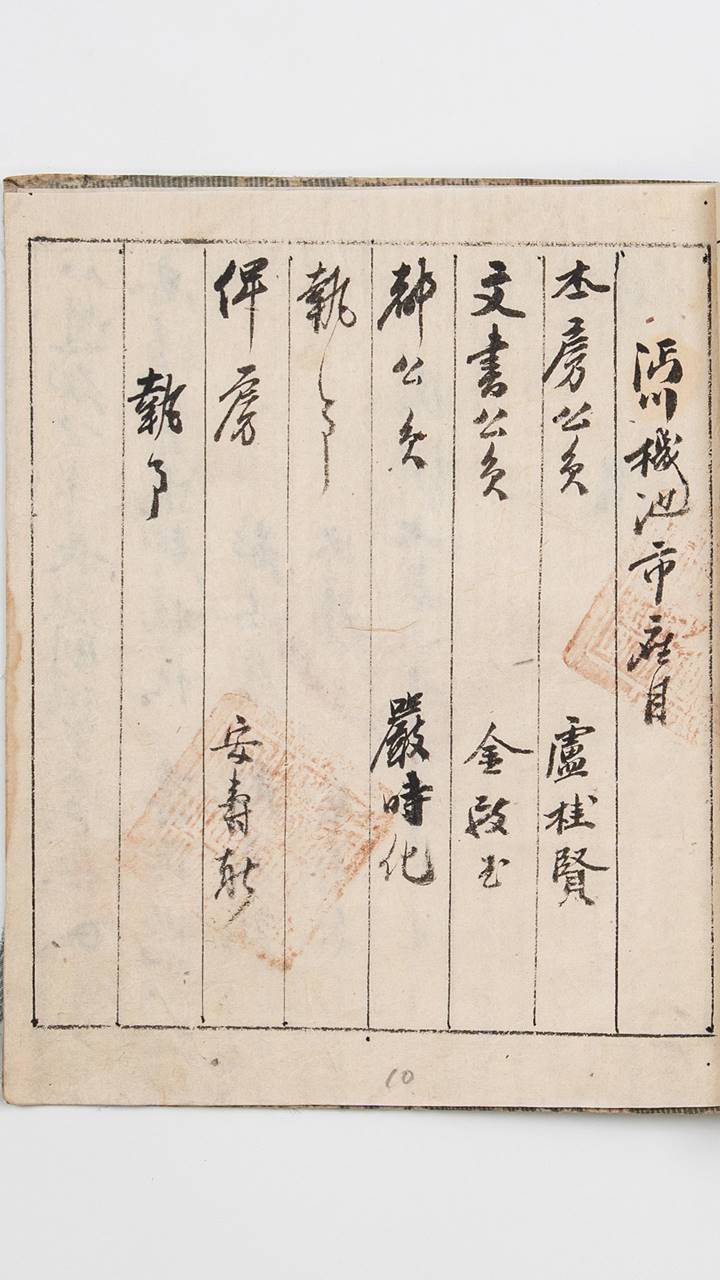 沔川機池市座目
本房公員 盧桂賢
文書公員 金啟玉
都公員 嚴時化
執事
裨房 安壽
執事
10